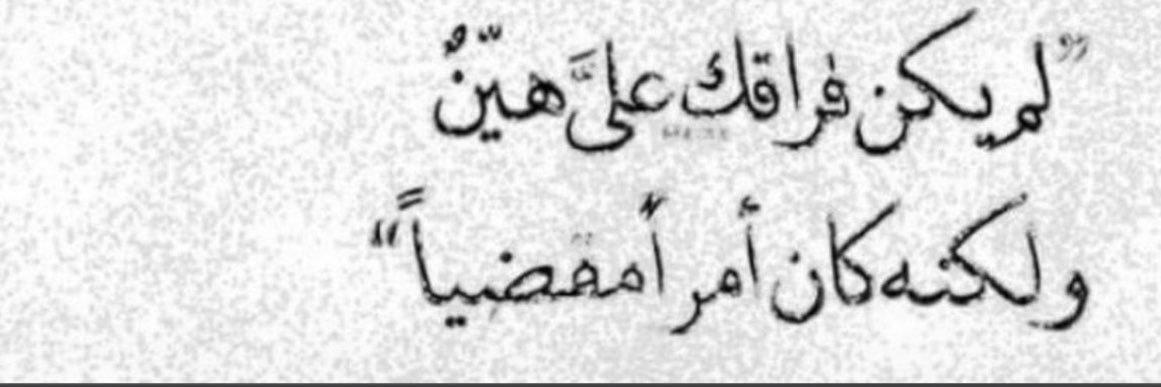 ”لم يكن فراقك عليَّ هيّنٌ
ولكنه كان أمراً مقضياً“